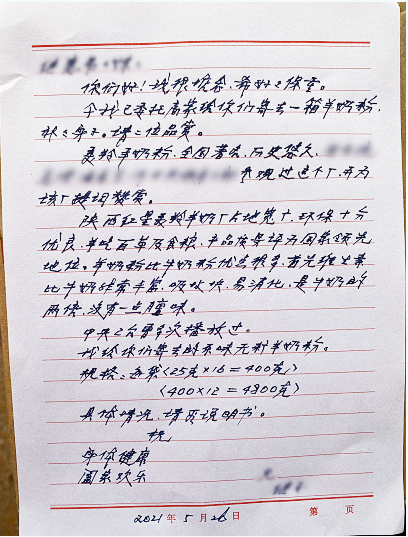 你们好！我很挂念，希好々保重。
今我已委托高 给你们寄去一箱羊奶粉，
补々身子。请二位品赏。
美羚羊奶粉，全国著名，历史悠久，
参观过这个厂，并为
该厂提词赞赏。
陕西红星美羚羊奶厂占地宽广，环保十分
优良，羊吃百草及食粮，产品质量评为国家领先
地位。羊奶粉比牛奶粉优点很多，首先维生素
比牛奶维素丰富，吸收快，易消化，是牛奶的
两倍，没有一点膻味。
中央2台曾多次播放过。
我给你们寄去的原味无 羊奶粉。
规格：每袋(25克×16=400克)
(400×12=4800克)
具体情况，请 说明书。
祝
身体健康
阖家欢乐
2021年5月26日 第 页